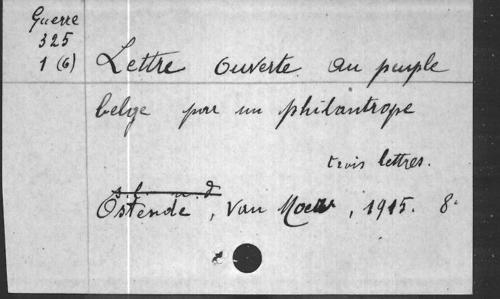 Guerre
325
1 (6)
Lettre ouverte au peuple
belge par un philantrope
trois lettres.
s. l. n. d
Ostende, Van Moer, 1915. 8°